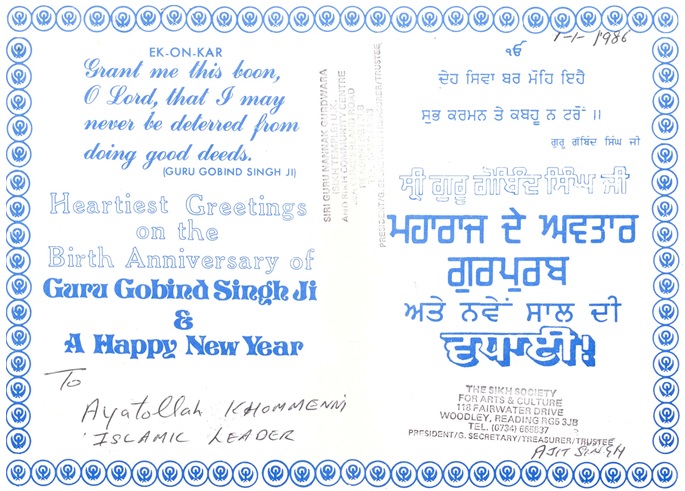 EK-ON-KAR
Grant me this boon,
O Lord, that I may
never be deterred from
doing good deeds.
(GURU GOBIND SINGH JI)
Heartiest Greetings
on the
Birth Anniversary of
Guru Gobind Singh Ji
&
A Happy New Year
To
Ayatollah KHOMMENNI
ISLAMIC LEADER
SIRI GURU NANAK GURDWARA
AND SIKH COMMUNITY CENTRE
PRESIDENT/G. SECRETARY/TREASURER/TRUSTEE
1-1-1986
ੴ
ਦੇਹ ਸਿਵਾ ਬਰ ਮੋਹਿ ਇਹੈ
ਸੁਭ ਕਰਮਨ ਤੇ ਕਬਹੂ ਨ ਟਰੋਂ ।।
ਗੁਰੂ ਗੋਬਿੰਦ ਸਿੰਘ ਜੀ
ਸ੍ਰੀ ਗੁਰੂ ਗੋਬਿੰਦ ਸਿੰਘ ਜੀ
ਮਹਾਰਾਜ ਦੇ ਅਵਤਾਰ
ਗੁਰਪੁਰਬ
ਅਤੇ ਨਵੇਂ ਸਾਲ ਦੀ
ਵਧਾਈ!
THE SIKH SOCIETY
FOR ARTS & CULTURE
118 FAIRWATER DRIVE
WOODLEY, READING RG5 3JB
TEL. (0734) 666837
PRESIDENT/G. SECRETARY/TREASURER/TRUSTEE
AJIT SINGH